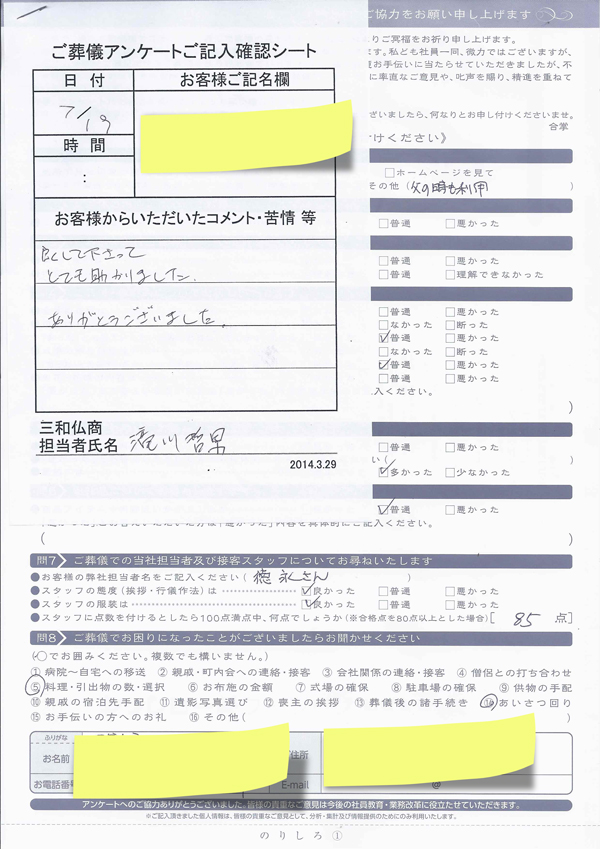 ご協力をお願い申し上げます
ご葬儀アンケートご記入確認シート
日 付
お客様ご記名欄
7/19
時 間
:
お客様からいただいたコメント・苦情 等
良くして下さって
とても助かりました。
ありがとうございました。
三和仏商
担当者氏名
2014.3.29
りご冥福をお祈り申し上げます。
ます。私ども社員一同、微力ではございますが、
お手伝いに当たらせていただきましたが、不
に率直なご意見や、叱声を賜り、精進を重ねて
ざいましたら、何なりとお申し付けくださいませ。
合掌
けください》
□ホームページを見て
その他(父の時も利用
□普通 □悪かった
□普通 □悪かった
□普通 □理解できなかった
□普通 □悪かった
□なかった □断った
☑普通 □悪かった
□なかった □断った
☑普通 □悪かった
入ください。
)
□普通 □悪かった
い( )
☑多かった □少なかった
☑普通 □悪かった
内容を具体的にご記入ください。
( )
問7 ご葬儀での当社担当者及び接客スタッフについてお尋ねいたします
●お客様の弊社担当者名をご記入ください( 徳永さん )
●スタッフの態度(挨拶・行儀作法)は ☑良かった □普通 □悪かった
●スタッフの服装は ☑良かった □普通 □悪かった
●スタッフに点数を付けるとしたら100点満点中、何点でしょうか(※合格点を80点以上とした場合)[ 85 点]
問8 ご葬儀でお困りになったことがございましたらお聞かせください
(○でお囲みください。複数でも構いません。)
① 病院～自宅への移送 ② 親戚・町内会への連絡・接客 ③ 会社関係の連絡・接客 ④ 僧侶との打ち合わせ
⑤ 料理・引出物の数・選択 ⑥ お布施の金額 ⑦ 式場の確保 ⑧ 駐車場の確保 ⑨ 供物の手配
⑩ 親戚の宿泊先手配 ⑪ 遺影写真選び ⑫ 喪主の挨拶 ⑬ 葬儀後の諸手続き ⑭ あいさつ回り
⑮ お手伝いの方へのお礼 ⑯ その他( )
ふりがな
お名前
ご住所
お電話番号
E-mail
@
アンケートへのご協力ありがとうございました。皆様の貴重なご意見は今後の社員教育・業務改革に役立たせていただきます。
※ご記入頂きました個人情報は、皆様の貴重なご意見として、分析・集計及び情報提供のためにのみ利用いたします。
のりしろ①